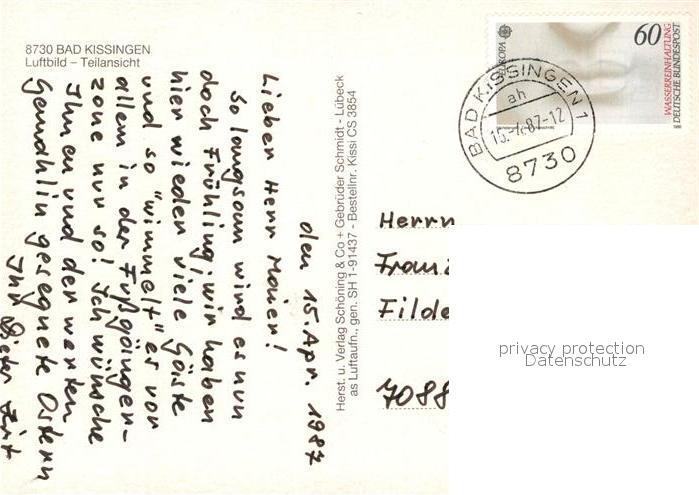 8730 BAD KISSINGEN
Luftbild – Teilansicht
den 15. Apr. 1987
Lieber Herr Maier!
So langsam wird es nun
doch Frühling, wir haben
hier wieder viele Gäste
und so "wimmelt" es vor
allem in der Fußgänger-
zone nur so! Ich wünsche
Ihnen und der werten
Gemahlin gesegnete Ostern
Ihr Dieter
Herst. u. Verlag Schöning & Co + Gebrüder Schmidt - Lübeck
as Luftaufn., gen. SH 1-91437 - Bestellnr. Kissi CS 3854
EUROPA
60
WASSERREINHALTUNG
DEUTSCHE BUNDESPOST
BAD KISSINGEN 1
ah
15.-4.87-12
8730
Herrn
Franz
Filde
7088
privacy protection
Datenschutz